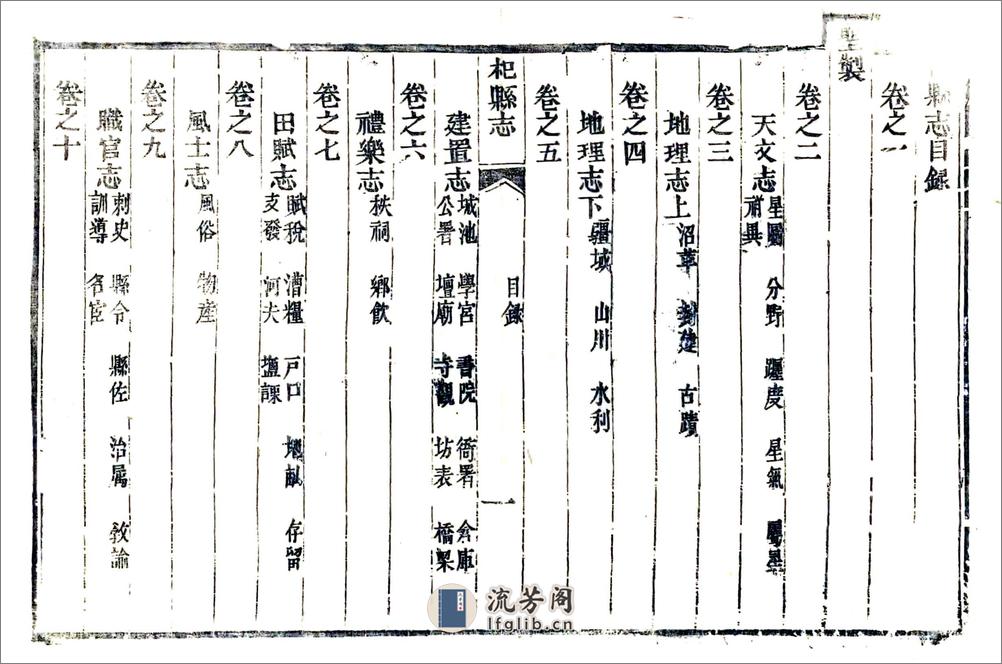 縣志目錄
卷之一
聖製
卷之二
天文志 星圖 分野 躔度 星氣 祥異
卷之三
地理志上 沿革 封建 古蹟
卷之四
地理志下 疆域 山川 水利
卷之五
杞縣志 目錄 一
建置志 城池 學宮 書院 衙署 倉庫 公署 壇廟 寺觀 坊表 橋梁
卷之六
禮樂志 秩祠 鄉飲
卷之七
田賦志 賦稅 漕糧 戶口 地畝 存留 支發 河夫 鹽課
卷之八
風土志 風俗 物產
卷之九
職官志 刺史 縣令 縣佐 治屬 教諭 訓導 名宦
卷之十
流芳阁
lfglib.cn